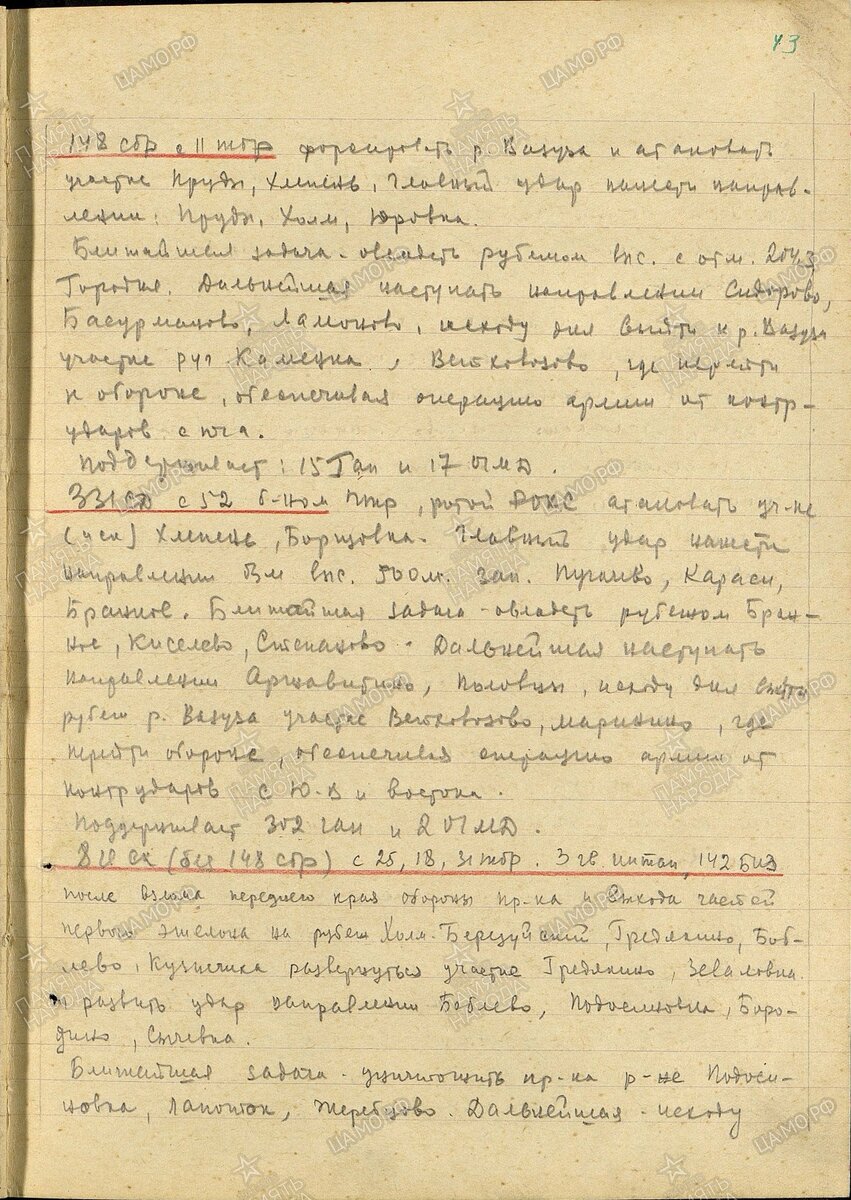 43
148 сбр с 11 тбр форсировать р. Вазуза и атаковать
участке Пруды, Хлепень, Главный удар нанести направ-
лении: Пруды, Холм, Юровка.
Ближайшая задача - овладеть рубежом выс. с отм. 204,3
Городня. Дальнейшая наступать направлении Сидорово,
Басурманово, Ламоново, исходу дня выйти к р. Вазуза
участке руч. Каменка, Ветковозово, где перейти
к обороне, обеспечивая операцию армии от контр-
ударов с юга.
Поддерживает: 15 Гап и 17 ОГМД.
331 сд с 52 б-ном ПТР, ротой РОКС атаковать уч-ке
(иск) Хлепень, Борщовка. Главный удар нанести
направлении выс. 500 м. зап. Пугачево, Караси,
Бранное. Ближайшая задача - овладеть рубежом Бран-
ное, Киселево, Степаново. Дальнейшая наступать
направлении Аржавитино, Половцы, исходу дня выйти
рубеж р. Вазуза участке Ветковозово, Маринино, где
перейти обороне, обеспечивая операцию армии от
контрударов с Ю.-В и востока.
Поддерживает 302 гап и 2 ОГМД.
8 гв ск (без 148 сбр) с 25, 18, 31 тбр. 3 гв. иптап, 142 БИЗ
после взлома переднего края обороны пр-ка и выхода частей
первого эшелона на рубеж Холм-Березуйский, Гредякино, Боб-
лево, Кузнечиха развернуться участке Гредякино, Зеваловка
и развить удар направлении Боблево, Подосиновка, Боро-
дино, Сычевка.
Ближайшая задача - уничтожить пр-ка р-не Подоси-
новка, Лапоток, Жеребцово. Дальнейшая - исходу
ПАМЯТЬ НАРОДА
ЦАМО.РФ